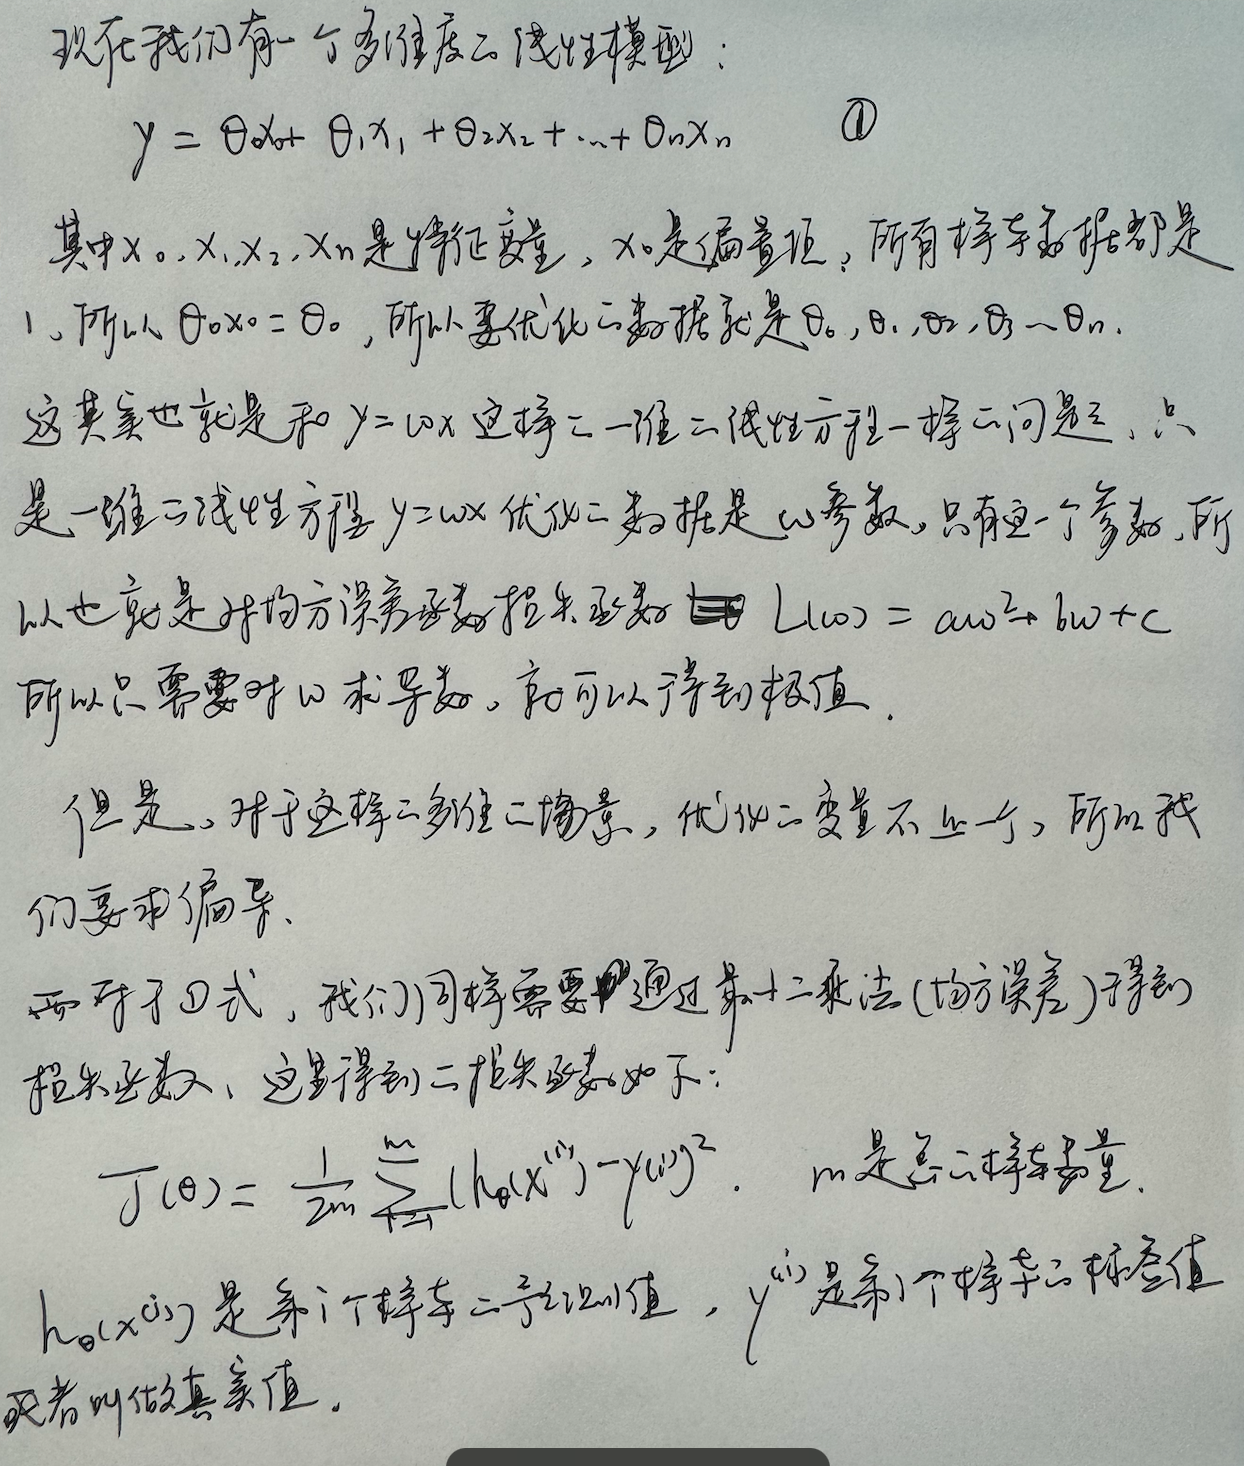 现在我们有一个多维度的线性模型：
y = θ₀x₀ + θ₁x₁ + θ₂x₂ + ... + θₙxₙ ①
其中x₀、x₁、x₂、xₙ是特征变量，x₀是偏置项，所有样本数据都是
1、所以θ₀x₀=θ₀，所以要优化的数据就是θ₀,θ₁,θ₂,θ₃…θₙ.
这其实也就是和 y=ωx 这样的一维的线性方程一样的问题、只
是一维的线性方程 y=ωx 优化的数据是ω参数，只有这一个参数，所
以也就是对均方误差函数损失函数 L(ω) = aω²+bω+c
所以只需要对ω求导数，就可以得到极值.
但是，对于这样的多维的场景，优化的变量不止一个，所以我
们要求偏导、
而对于①式，我们同样需要通过最小二乘法(均方误差)得到
损失函数、这里得到的损失函数如下：
J(θ) = 1/2m ∑ᵢ₌₁ᵐ (hθ(x⁽ⁱ⁾) - y⁽ⁱ⁾)². m是总的样本数量.
hθ(x⁽ⁱ⁾) 是第i个样本的预测值，y⁽ⁱ⁾是第i个样本的标签值
或者叫做真实值.